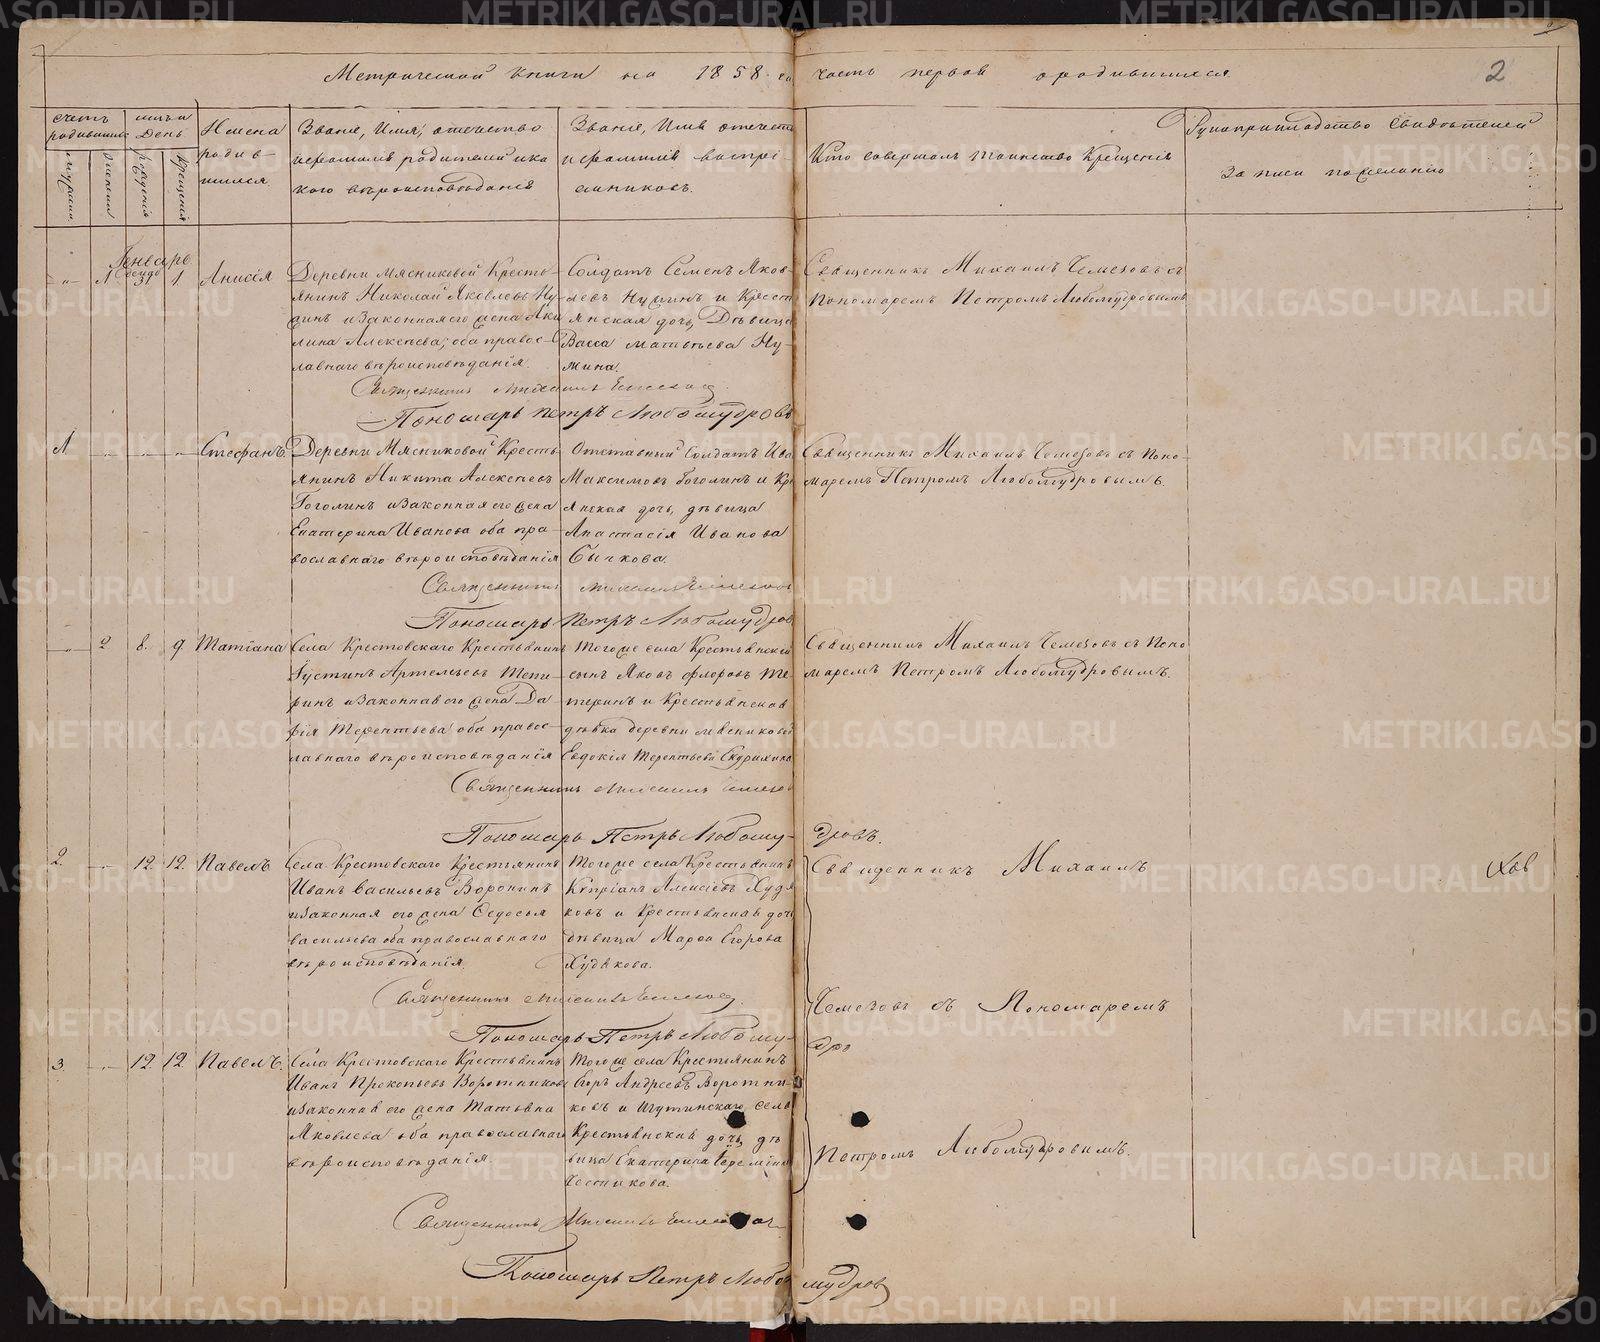 Метрической книги на 1858 го часть первой ородившихся
2
счетъ родившихся
мужеска
женска
мсц и День
рождения
Крещения
Имена родив-
шихся
Званіе, Имя, отечество
и фамилія родителей и ка
кого вѣроисповѣданія
Званіе, Имя отечест
и фамилія воспрі-
емниковъ.
Кто совершалъ таинство Крещенія
Рукоприкладство Свидѣтелей
Записи пожеланію
Январь
1 31 1. Анисія
Деревни Мясниковой Кресть-
янинъ Николай Яковлевъ Ну-
жинъ и законная его жена Аки
лина Алексѣева; оба правос-
лавнаго вѣроисповѣданія.
Солдатъ Семенъ Яков-
левъ Нужинъ и Кресть
янская дочь, Дѣвица
Васса Матвѣева Ну-
жина.
Священникъ Михаилъ Чемезовъ съ
Пономаремъ Петромъ Любомудровымъ
Священникъ Михаилъ Чемезовъ
Пономарь Петръ Любомудровъ
1 Стефанъ.
Деревни Мясниковой Кресть-
янинъ Никита Алексѣевъ
Гоголинъ и законная его жена
Екатерина Иванова оба пра-
вославнаго вѣроисповѣданія
Отставный Солдатъ Ива
Максимовъ Гоголинъ и Кре
янская дочь, дѣвица
Анастасія Иванова
Бычкова.
Священникъ Михаилъ Чемезовъ съ Поно-
маремъ Петромъ Любомудровымъ.
Священникъ Михаилъ Чемезовъ
Пономарь Петръ Любомудров
2 8. 9 Татіана
Села Крестовскаго Крестьянинъ
Іустинъ Артемьевъ Тете-
ринъ и законная его жена Да-
рія Терентьева оба правос-
лавнаго вѣроисповѣданія
Тогоже села Крестьянской
сынъ Яковъ Флоровъ Те-
теринъ и Крестьянская
дѣвка деревни Мясниковой
Евдокія Терентьева
Священникъ Михаилъ Чемезовъ съ Поно
маремъ Петромъ Любомудровымъ.
Священникъ Михаилъ Чемезов
Пономарь Петръ Любому-
дровъ.
2. 12. 12. Павелъ
Села Крестовскаго Крестьянинъ
Иванъ Васильевъ Воронинъ
и законная его жена Ѳедосья
Васильева оба православнаго
вѣроисповѣданія.
Тогоже села Крестьянинъ
Кипріанъ Алексіевъ Худя
ковъ и Крестьянская доч
дѣвица Марѳа Егорова
Худякова.
Священникъ Михаилъ
Священникъ Михаилъ Чемезовъ.
Чемезовъ съ Пономаремъ
Пономарь Петръ Любому-
дро
3. 12. 12. Павелъ.
Села Крестовскаго Крестьянинъ
Иванъ Прокопьевъ Воротниковъ
и законная его жена Татьяна
Яковлева оба православнаго
вѣроисповѣданія.
Тогоже села Крестьянинъ
Егоръ Андреевъ Воротни-
ковъ и Ичутинскаго села
Крестьянская дочь, дѣ
вица Екатерина
Петромъ Любомудровымъ.
Священникъ Михаилъ
Пономарь Петръ Любо
мудров
METRIKI.GASO-URAL.RU